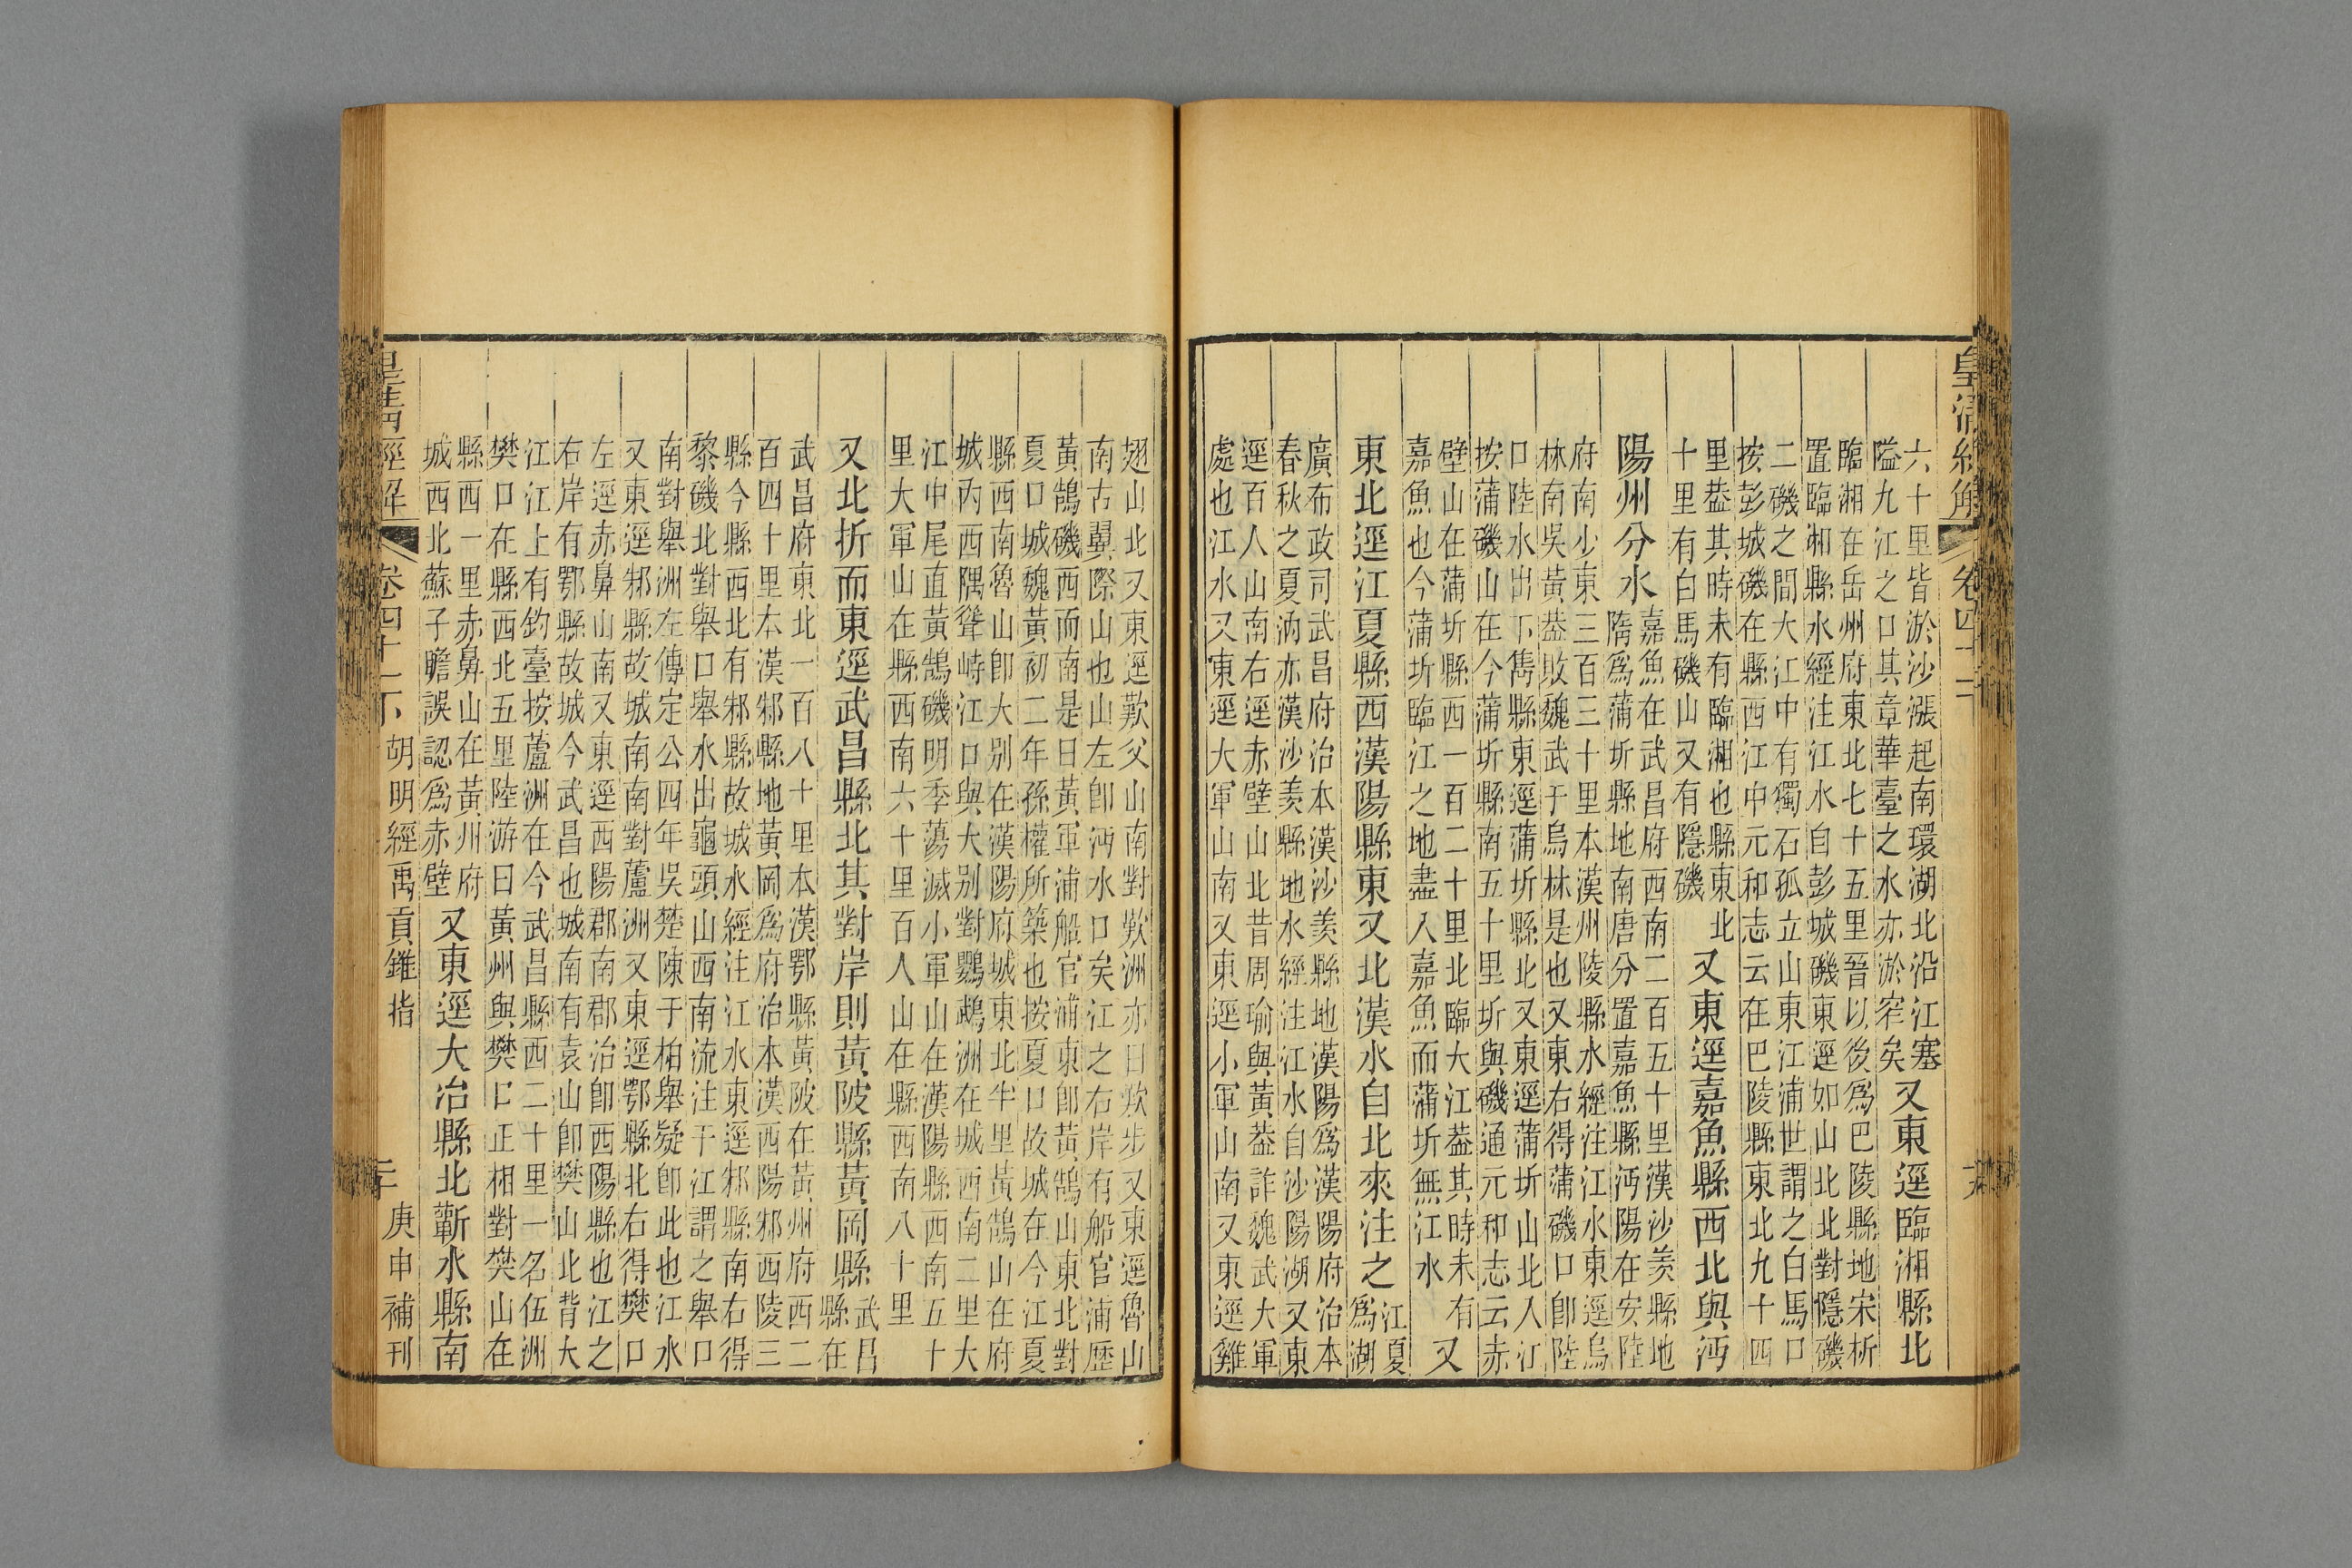 皇清經解
六十里皆淤沙漲起南環湖北沿江塞
隘九江之口其章華臺之水亦淤窄矣
又東逕臨湘縣北
臨湘在岳州府東北七十五里晉以後爲巴陵縣地宋析
置臨湘縣水經注江水自彭城磯東逕如山北北對隱磯
二磯之間大江中有獨石孤立山東江浦世謂之白馬口
按彭城磯在縣西江中元和志云在巴陵縣東北九十四
里葢其時未有臨湘也縣東北
十里有白馬磯山又有隱磯
又東逕嘉魚縣西北與沔
陽州分水
嘉魚在武昌府西南二百五十里漢沙羡縣地
隋爲蒲圻縣地南唐分置嘉魚縣沔陽在安陸
府南少東三百三十里本漢州陵縣水經注江水東逕烏
林南吳黃葢敗魏武于烏林是也又東右得蒲磯口卽陸
口陸水出下雋縣東逕蒲圻縣北又東逕蒲圻山北入江
按蒲磯山在今蒲圻縣南五十里圻與磯通元和志云赤
壁山在蒲圻縣西一百二十里北臨大江葢其時未有
嘉魚也今蒲圻臨江之地盡入嘉魚而蒲圻無江水
又
東北逕江夏縣西漢陽縣東又北漢水自北來注之
江夏
爲湖
廣布政司武昌府治本漢沙羡縣地漢陽爲漢陽府治本
春秋之夏汭亦漢沙羡縣地水經注江水自沙陽湖又東
逕百人山南右逕赤壁山北昔周瑜與黃葢詐魏武大軍
處也江水又東逕大軍山南又東逕小軍山南又東逕雞
翅山北又東逕歎父山南對歎洲亦曰歎步又東逕魯山
南古翼際山也山左卽沔水口矣江之右岸有船官浦歷
黃鵠磯西而南是曰黃軍浦船官浦東卽黃鵠山東北對
夏口城魏黃初二年孫權所築也按夏口故城在今江夏
縣西南魯山卽大别在漢陽府城東北半里黃鵠山在府
城内西隅聳峙江口與大别對鸚鵡洲在城西南二里大
江中尾直黃鵠磯明季蕩滅小軍山在漢陽縣西南五十
里大軍山在縣西南六十里百人山在縣西南八十里
又北折而東逕武昌縣北其對岸則黃陂縣黃岡縣
武昌
縣在
武昌府東北一百八十里本漢鄂縣黃陂在黃州府西二
百四十里本漢邾縣地黃岡爲府治本漢西陽邾西陵三
縣今縣西北有邾縣故城水經注江水東逕邾縣南右得
黎磯北對舉口舉水出龜頭山西南流注于江謂之舉口
南對舉洲左傳定公四年吳楚陳于柏舉疑卽此也江水
又東逕邾縣故城南南對蘆洲又東逕鄂縣北右得樊口
左逕赤鼻山南又東逕西陽郡南郡治卽西陽縣也江之
右岸有鄂縣故城今武昌也城南有袁山卽樊山北背大
江江上有釣臺按蘆洲在今武昌縣西二十里一名伍洲
樊口在縣西北五里陸游曰黃州與樊口正相對樊山在
縣西一里赤鼻山在黃州府
城西北蘇子瞻誤認爲赤壁
又東逕大冶縣北蘄水縣南
皇清經解 卷四十一下 胡明經禹貢錐指 庚申補刊